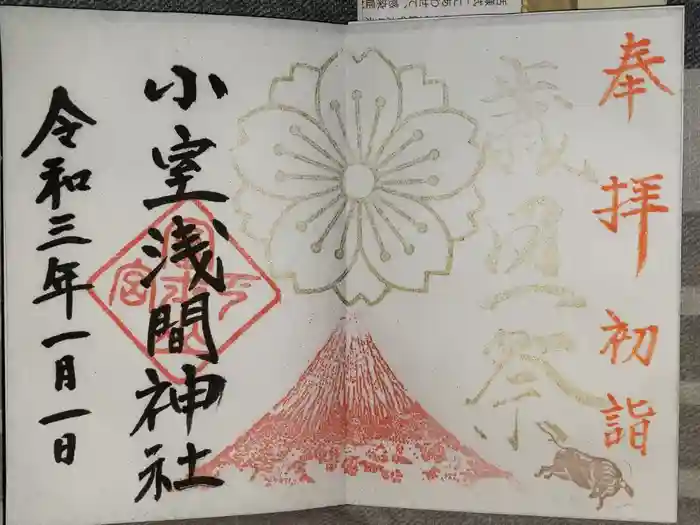 奉拝 初詣
歳旦祭
小室浅間神社
令和三年一月一日